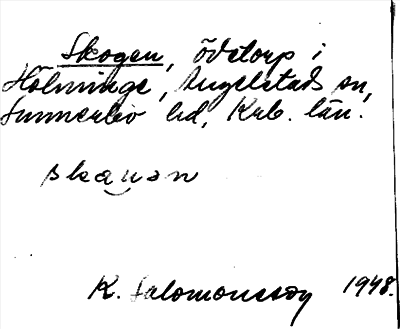 Skogen, ödetorp i
Hölminge, Angelstads sn,
Sunnerbo hd, Krb. län.
skau̯ən
K. Salomonsson 1948.